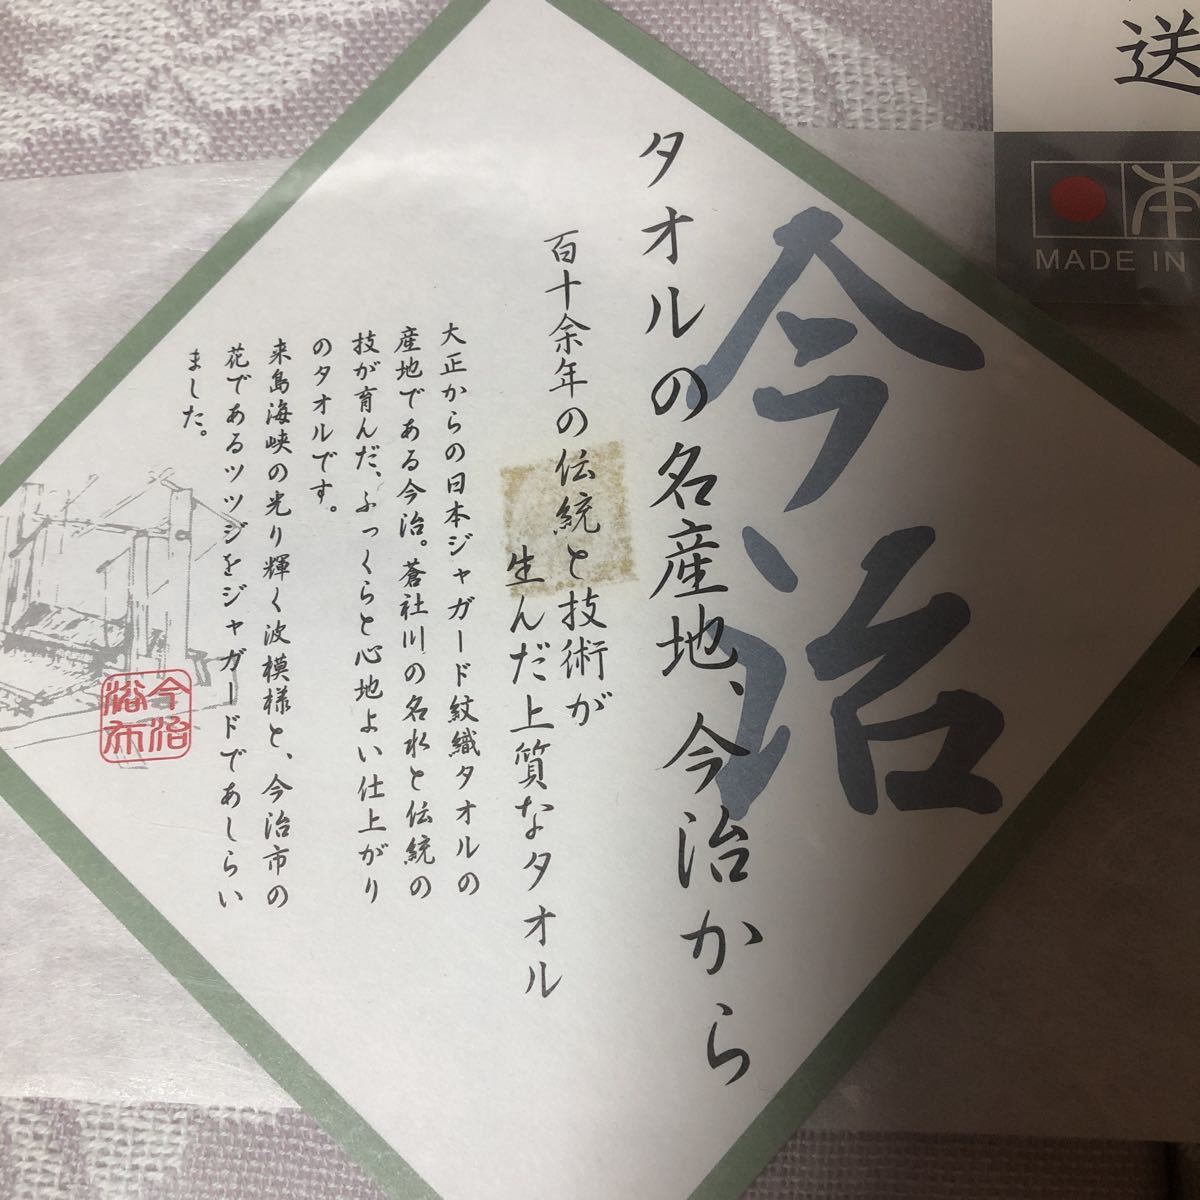 今治
タオルの名産地、今治から
百十余年の伝統と技術が
生んだ上質なタオル
大正からの日本ジャガード紋織タオルの
産地である今治。蒼社川の名水と伝統の
技が育んだ、ふっくらと心地よい仕上がり
のタオルです。
来島海峡の光り輝く波模様と、今治市の
花であるツツジをジャガードであしらい
ました。
今治
送
本
MADE IN